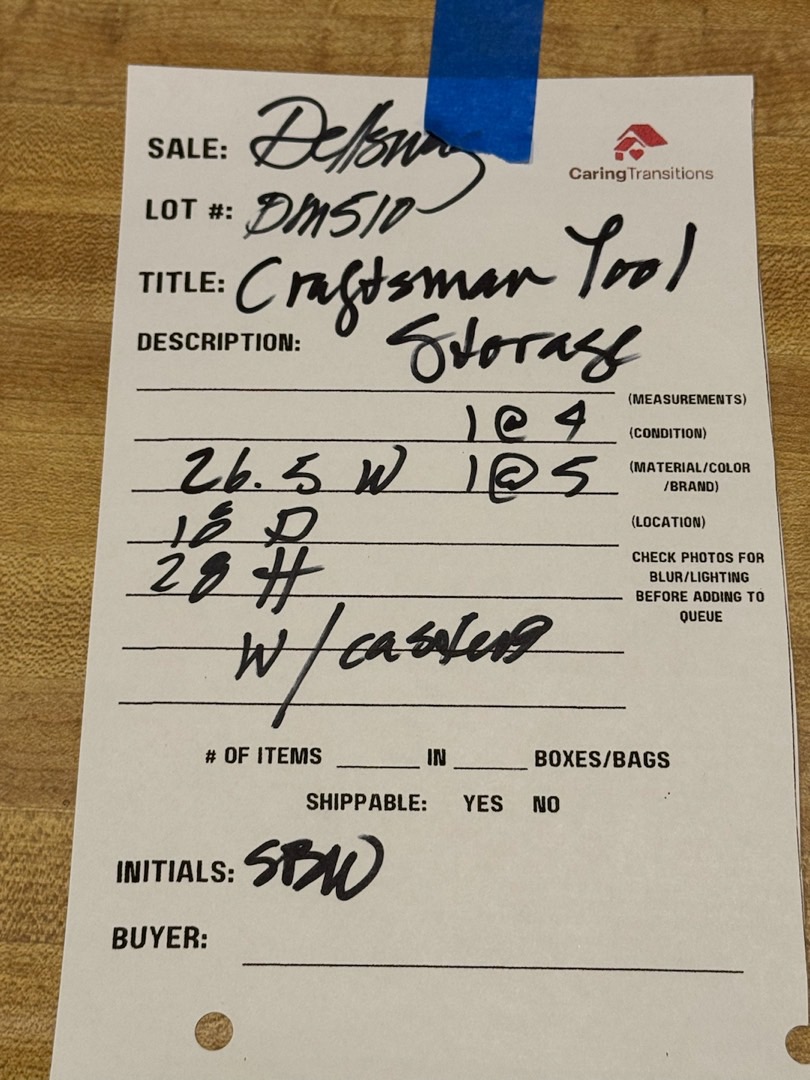 SALE:
CaringTransitions
LOT #: DM510
TITLE: Craftsman Tool
DESCRIPTION: Storage
(MEASUREMENTS)
1 @ 4 (CONDITION)
26.5 W 1 @ 5 (MATERIAL/COLOR
/BRAND)
18 D (LOCATION)
28 H CHECK PHOTOS FOR
BLUR/LIGHTING
BEFORE ADDING TO
QUEUE
W/casters
# OF ITEMS IN BOXES/BAGS
SHIPPABLE: YES NO
INITIALS: SBW
BUYER: